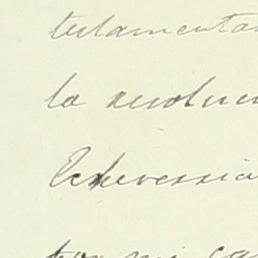 testamenta
la resoluci
Echeverria
por mi ca